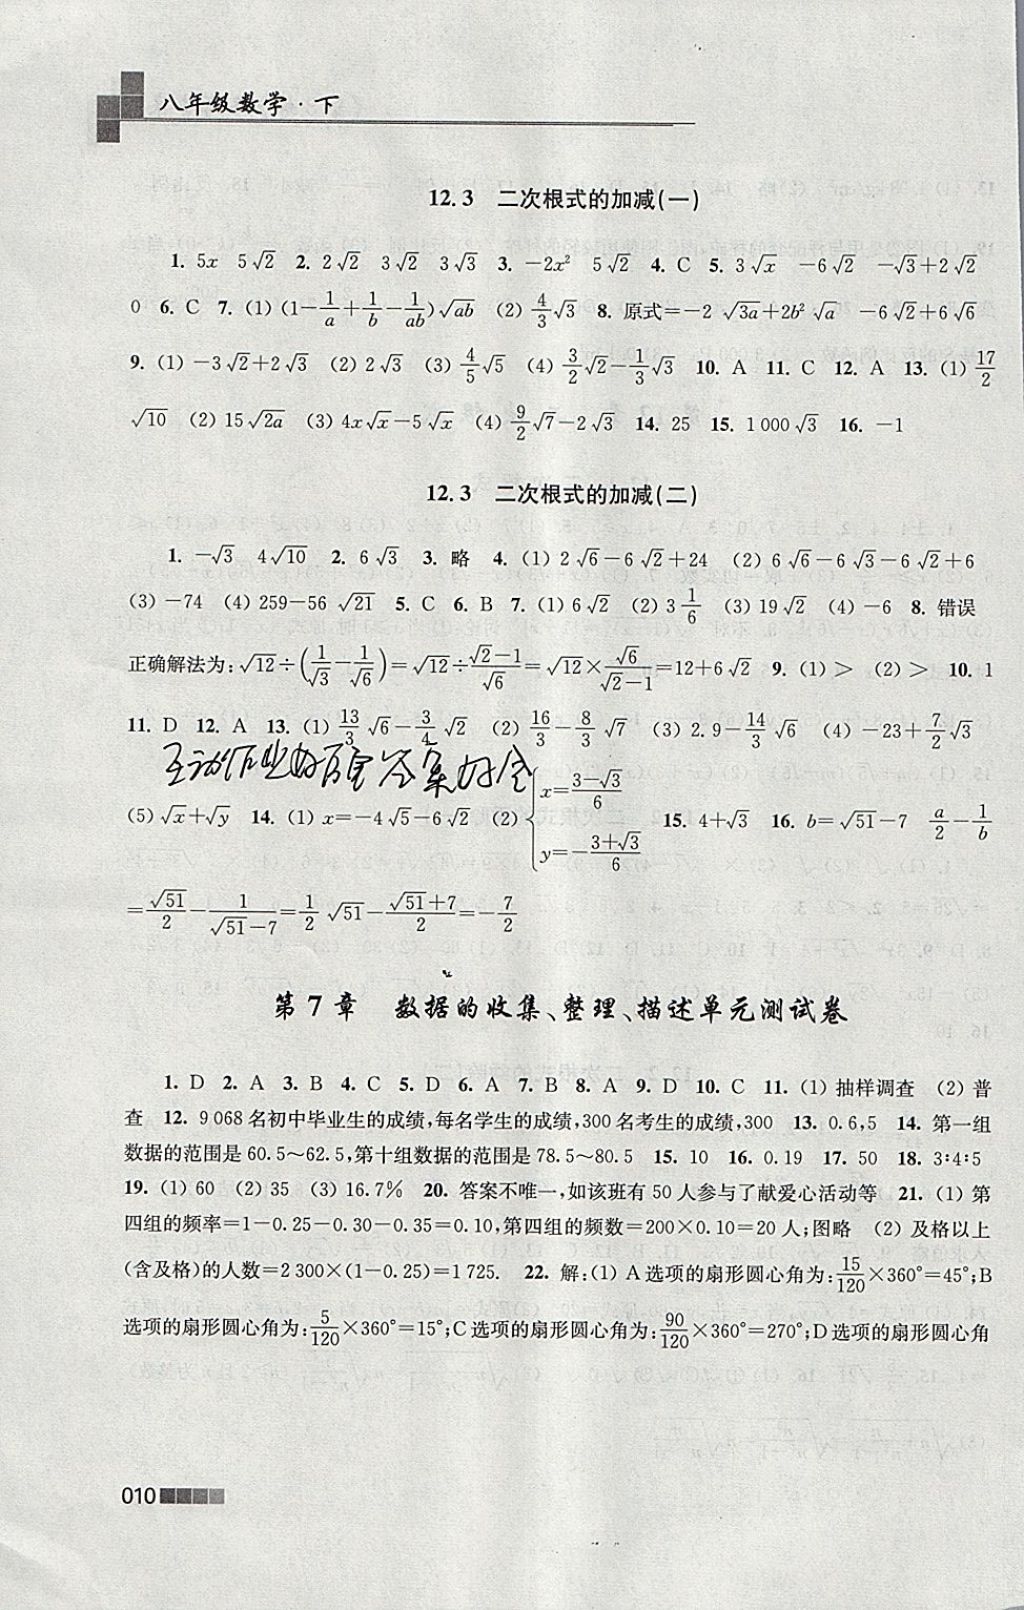 八年级数学·下
12.3 二次根式的加减(一)
1. 5x 5√2 2. 2√2 3√2 3√3 3. －2x² 5√2 4. C 5. 3√x －6√2 －√3＋2√2
0 6. C 7. (1) (1－1/a＋1/b－1/ab)√ab (2) 4/3√3 8. 原式＝－2√3a＋2b²√a －6√2＋6√6
9. (1) －3√2＋2√3 (2) 2√3 (3) 4/5√5 (4) 3/2√2－1/3√3 10. A 11. C 12. A 13. (1) 17/2
√10 (2) 15√2a (3) 4x√x－5√x (4) 9/2√7－2√3 14. 25 15. 1 000√3 16. －1
12.3 二次根式的加减(二)
1. －√3 4√10 2. 6√3 3. 略 4. (1) 2√6－6√2＋24 (2) 6√6－6√3－6√2＋6
(3) －74 (4) 259－56√21 5. C 6. B 7. (1) 6√2 (2) 3 1/6 (3) 19√2 (4) －6 8. 错误
正确解法为:√12÷(1/√3－1/√6)＝√12÷(√2－1)/√6＝√12×√6/(√2－1)＝12＋6√2 9. (1)＞ (2)＞ 10. 1
11. D 12. A 13. (1) 13/3√6－3/4√2 (2) 16/3－8/3√7 (3) 2.9－14/3√6 (4) －23＋7/2√3
互动作业好百宝答案好全
(5) √x＋√y 14. (1) x＝－4√5－6√2 (2) {x＝(3－√3)/6 y＝－(3＋√3)/6 15. 4＋√3 16. b＝√51－7 a/2－1/b
＝√51/2－1/(√51－7)＝1/2√51－(√51＋7)/2＝－7/2
第7章 数据的收集、整理、描述单元测试卷
1. D 2. A 3. B 4. C 5. D 6. A 7. B 8. A 9. D 10. C 11. (1) 抽样调查 (2) 普
查 12. 9 068名初中毕业生的成绩,每名学生的成绩,300名考生的成绩,300 13. 0.6,5 14. 第一组
数据的范围是60.5～62.5,第十组数据的范围是78.5～80.5 15. 10 16. 0.19 17. 50 18. 3∶4∶5
19. (1) 60 (2) 35 (3) 16.7% 20. 答案不唯一,如该班有50人参与了献爱心活动等 21. (1) 第
四组的频率＝1－0.25－0.30－0.35＝0.10,第四组的频数＝200×0.10＝20人;图略 (2) 及格以上
(含及格)的人数＝2 300×(1－0.25)＝1 725. 22. 解:(1) A选项的扇形圆心角为:15/120×360°＝45°;B
选项的扇形圆心角为:5/120×360°＝15°;C选项的扇形圆心角为:90/120×360°＝270°;D选项的扇形圆心角
010